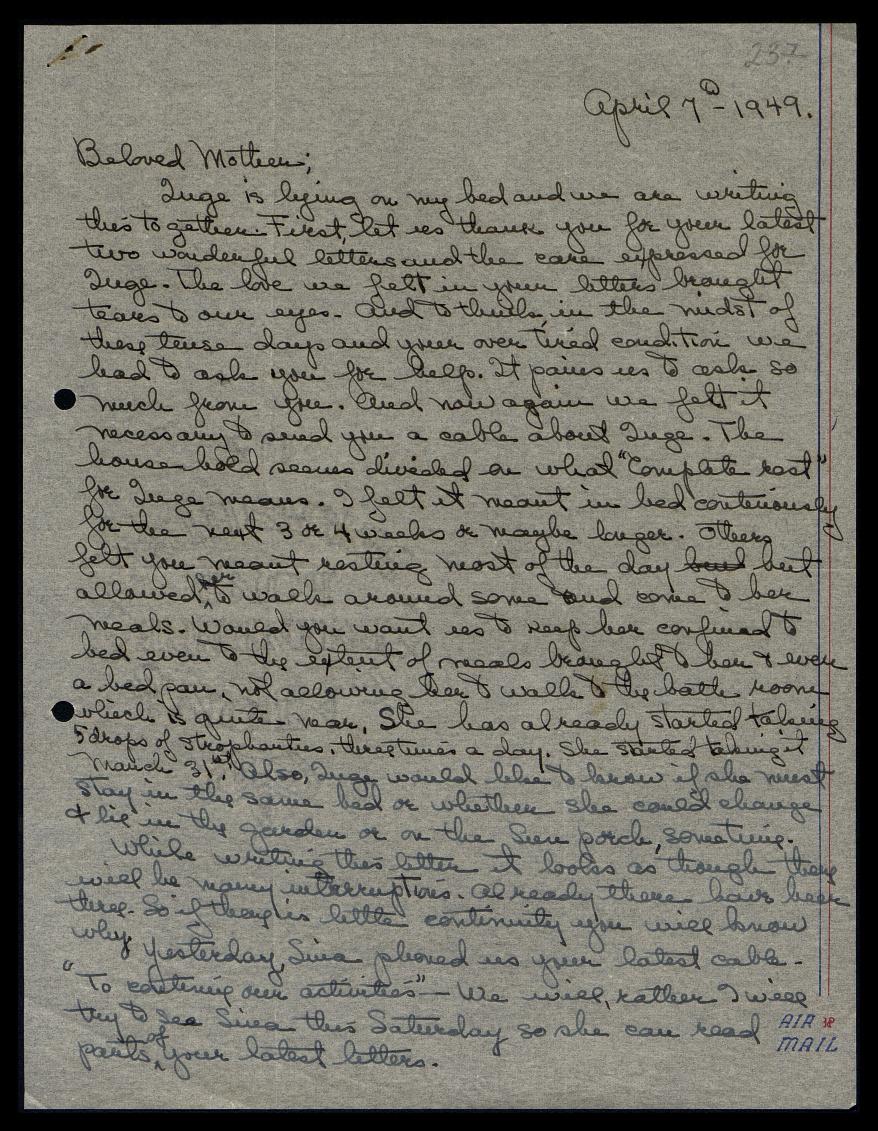 237
April 7th - 1949.
Beloved Mother;
Inge is lying on my bed and we are writing
this together. First, let us thank you for your latest
two wonderful letters and the care expressed for
Inge. The love we felt in your letters brought
tears to our eyes. And to think, in the midst of
these tense days and your over tired condition we
had to ask you for help. It pains us to ask so
much from you. And now again we felt it
necessary to send you a cable about Inge. The
house hold seems divided on what "Complete rest"
for Inge means. I felt it meant in bed continuously
for the next 3 or 4 weeks or maybe longer. Others
felt you meant resting most of the day but
allowed her to walk around some and come to her
meals. Would you want us to keep her confined to
bed even to the extent of meals brought to her & even
a bed pan, not allowing her to walk to the bath room
which is quite near. She has already started taking
5 drops of Strophantus, three times a day. She started taking it
March 31st. Also, Inge would like to know if she must
stay in the same bed or whether she could change
& lie in the garden or on the Sun porch, sometime.
While writing this letter it looks as though there
will be many interruptions. Already there have been
three. So if there is little continuity you will know
why. Yesterday, Sina phoned us your latest cable -
"To continue our activities" — We will, rather I will
try to see Sina this Saturday so she can read
parts of your latest letters.
AIR
MAIL